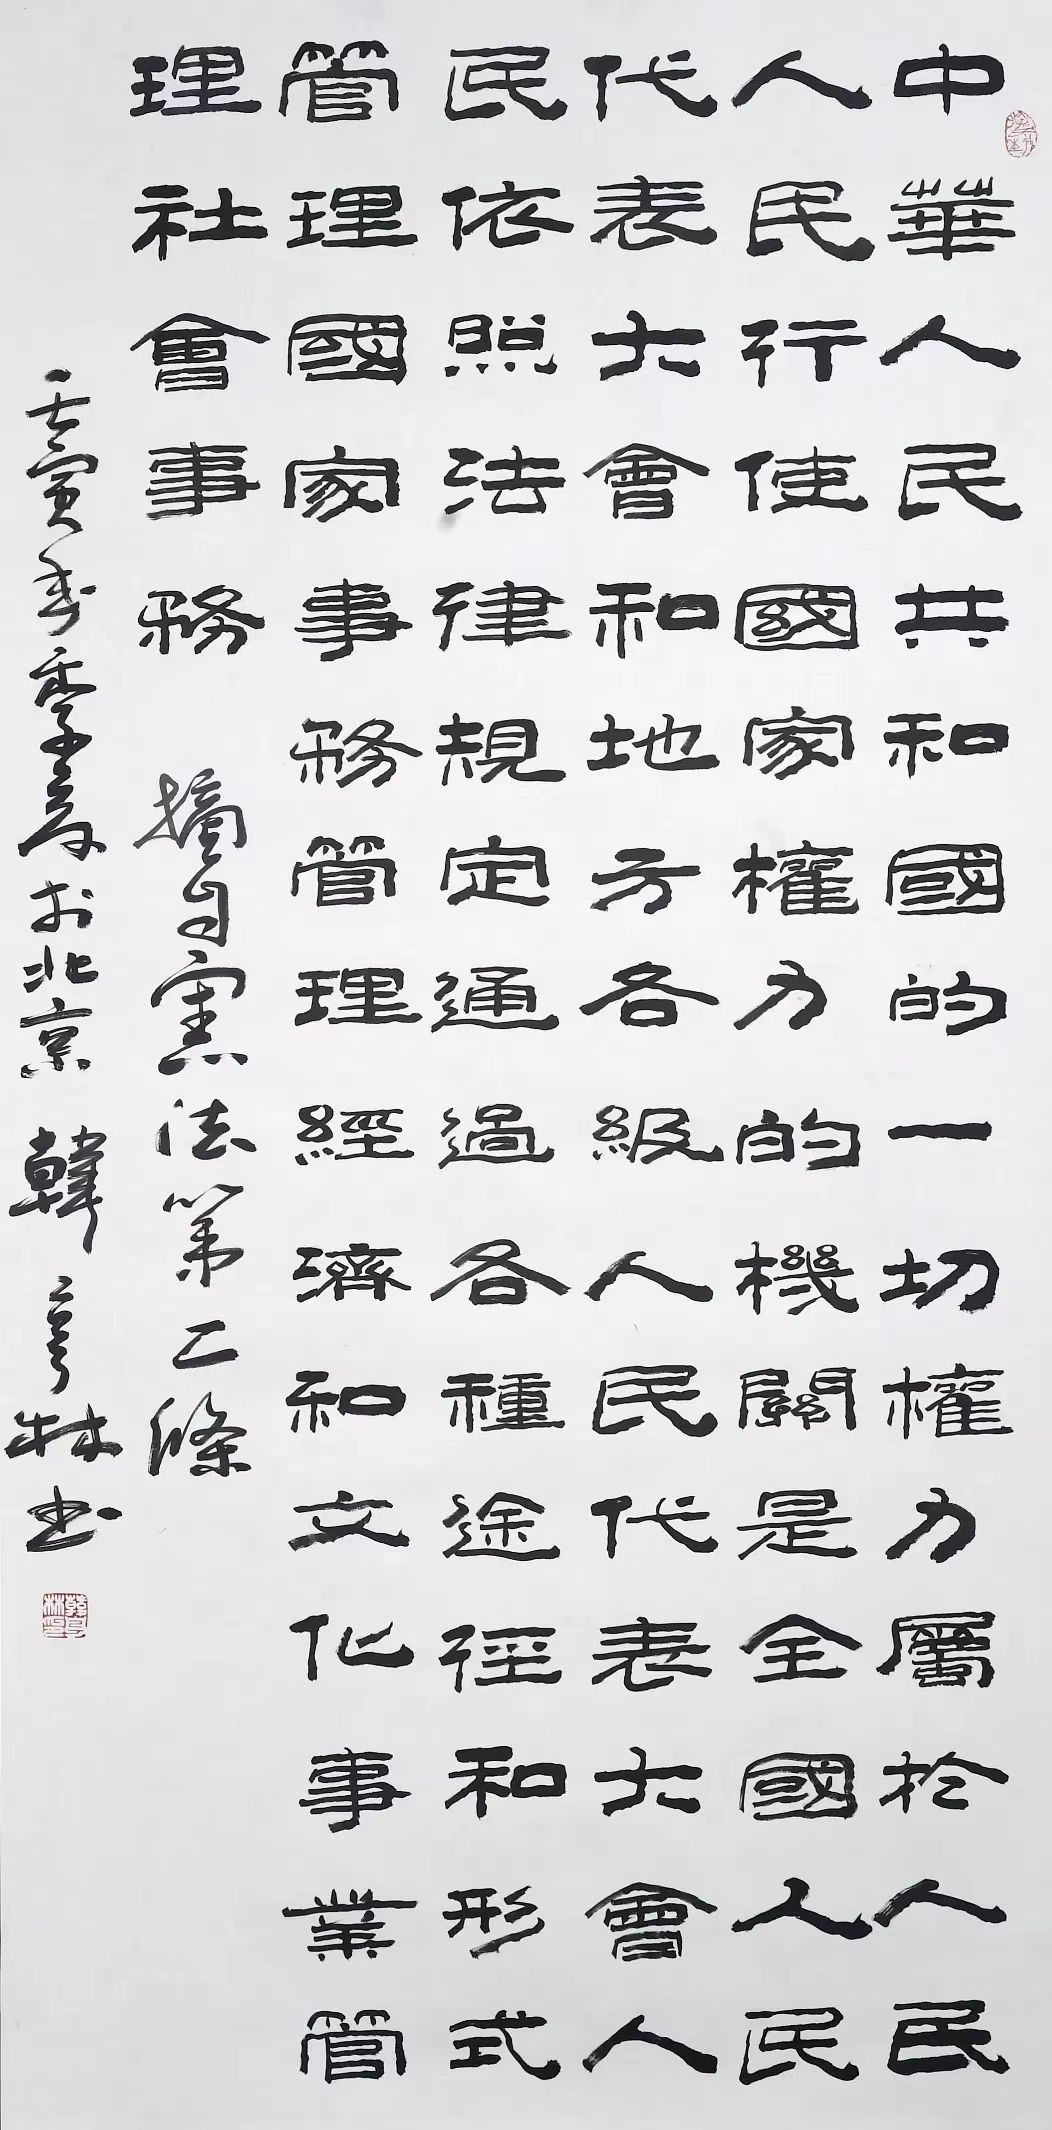 中華人民共和國的一切權力屬於人民
人民行使國家權力的機關是全國人民
代表大會和地方各級人民代表大會人
民依照法律規定通過各種途徑和形式
管理國家事務管理經濟和文化事業管
理社會事務
摘自憲法第二條
壬寅春季育於北京韓亨林書